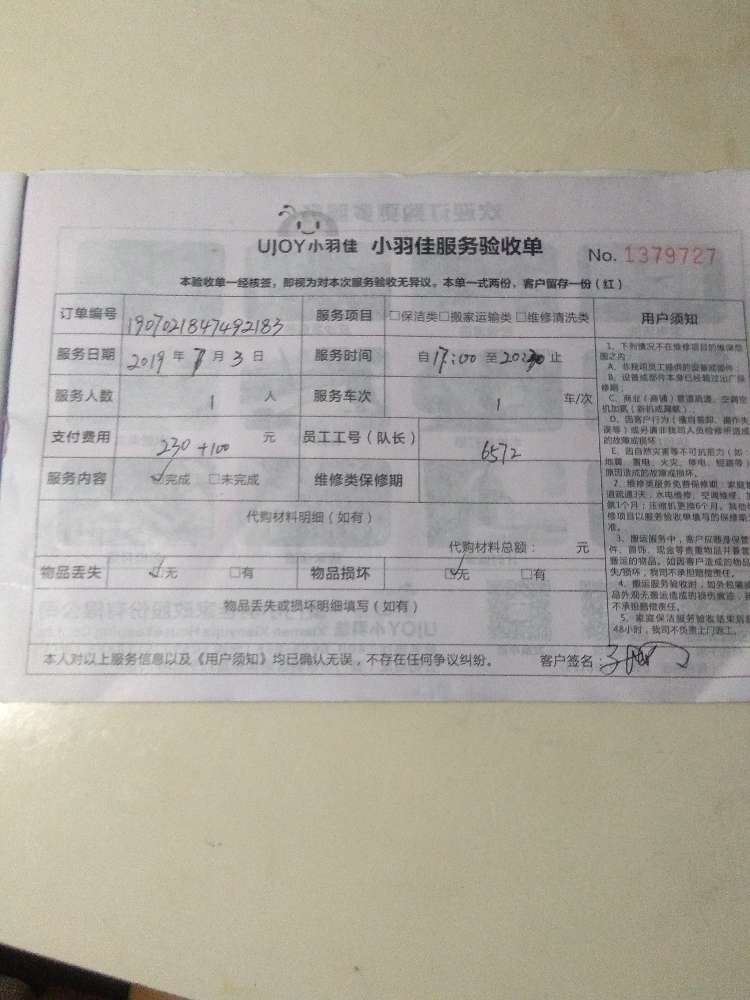 UJOY小羽佳 小羽佳服务验收单 No. 1379727
本验收单一经核签，即视为对本次服务验收无异议。本单一式两份，客户留存一份（红）
订单编号 1907021847492183 服务项目 □保洁类□搬家运输类□维修清洗类 用户须知
服务日期 2019 年 7 月 3 日 服务时间 自 17:00 至 20:30 止
服务人数 1 人 服务车次 1 车/次
支付费用 230+100 元 员工工号（队长） 6572
服务内容 ☑完成 □未完成 维修类保修期
代购材料明细（如有）
代购材料总额： 元
物品丢失 ☑无 □有 物品损坏 ☑无 □有
物品丢失或损坏明细填写（如有）
本人对以上服务信息以及《用户须知》均已确认无误，不存在任何争议纠纷。 客户签名：
1、下列情况不在维修项目的维保范
围之内：
A、非我司员工提供的设备或部件；
B、设备或部件本身已经超过出厂保
修期；
C、商业（商铺）管道疏通、空调空
机加氟（新机或漏氟）
D、因客户行为（擅自装卸、操作失
误等）或另请非我司人员检修所造成
的故障或损坏；
E、因自然灾害等不可抗能力（如：
地震、雷电、火灾、停电、短路等）
原因造成的故障或损坏。
2、维修类服务免费保修期：家庭管
道疏通3天，水电维修、空调维修、加
氟1个月；压缩机更换6个月。其他维
修项目以服务验收单填写的保修期为
准。
3、搬运服务中，客户应随身保管
件、首饰、现金等贵重物品并看管
搬运的物品。如因客户造成的物品
失/损坏，我司不承担赔偿责任。
4、搬运服务验收时，如外包装或
品外观无搬运造成的损伤痕迹，我
不承担赔偿责任。
5、家庭保洁服务验收结束后超
48小时，我司不负责上门返工。